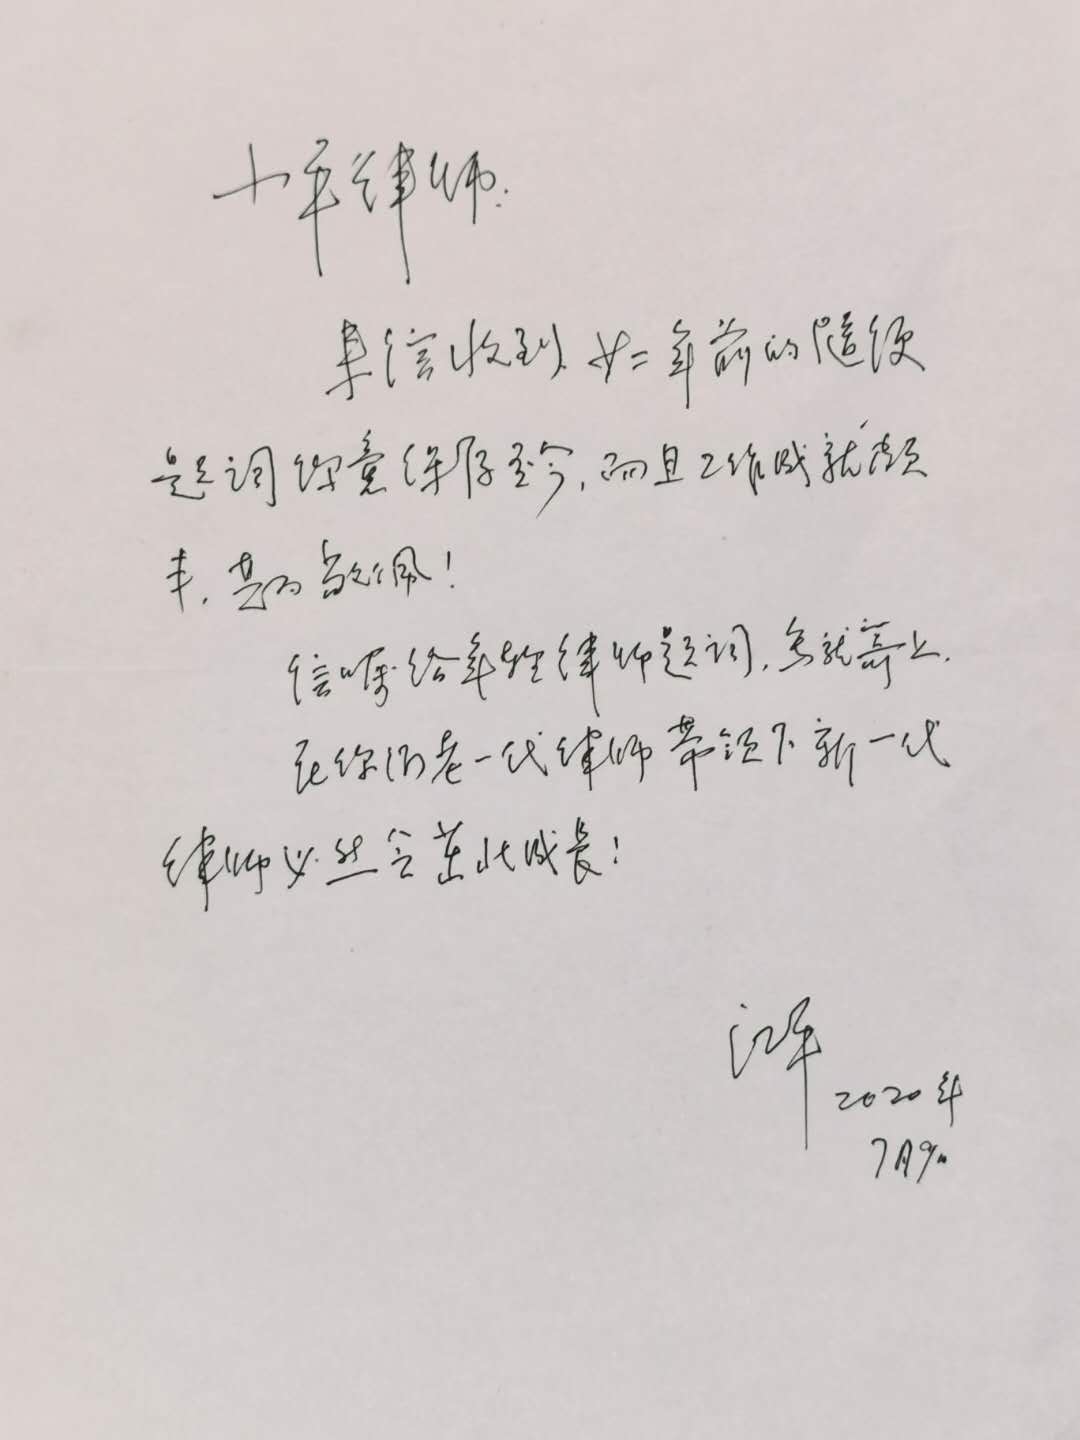 小平律师:
来信收到,廿二年前的随便
题词你竟保存至今,而且工作成就颇
丰,甚为敬佩!
信嘱给年轻律师题词,写就寄上.
在你们老一代律师带领下新一代
律师必然会茁壮成长!
江平
2020年
7月9日